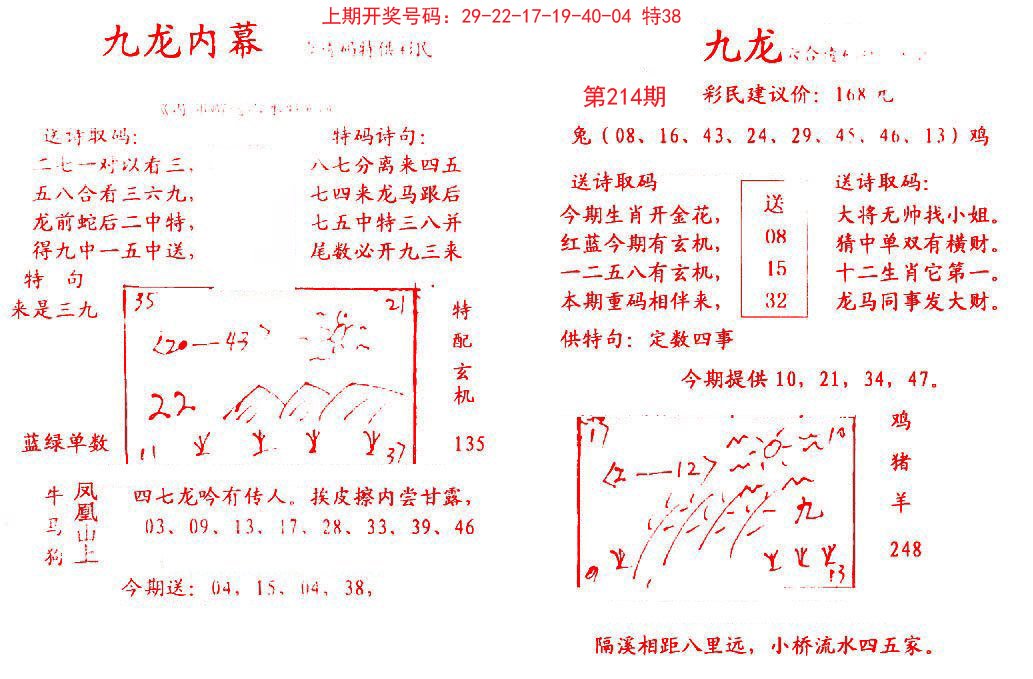 上期开奖号码：29-22-17-19-40-04 特38
九龙内幕
码特供彩民
送诗取码：
二七一对以看三，
五八合看三六九，
龙前蛇后二中特，
得九中一五中送，
特码诗句：
八七分离来四五
七四来龙马跟后
七五中特三八并
尾数必开九三来
特 句
来是三九
蓝绿单数
35 21
20—43
22
11 37
特
配
玄
机
135
牛
马
狗
凤
凰
山
上
四七龙吟有传人。挨皮擦内尝甘露，
03、09、13、17、28、33、39、46
今期送：04，15、04，38，
九龙
第214期 彩民建议价：168元
兔（08、16、43、24、29、45、46、13）鸡
送诗取码
今期生肖开金花，
红蓝今期有玄机，
一二五八有玄机，
本期重码相伴来，
送
08
15
32
送诗取码：
大将无帅找小姐。
猜中单双有横财。
十二生肖它第一。
龙马同事发大财。
供特句：定数四事
今期提供10，21，34，47。
17 10
2—12
九
9 13
鸡
猪
羊
248
隔溪相距八里远，小桥流水四五家。